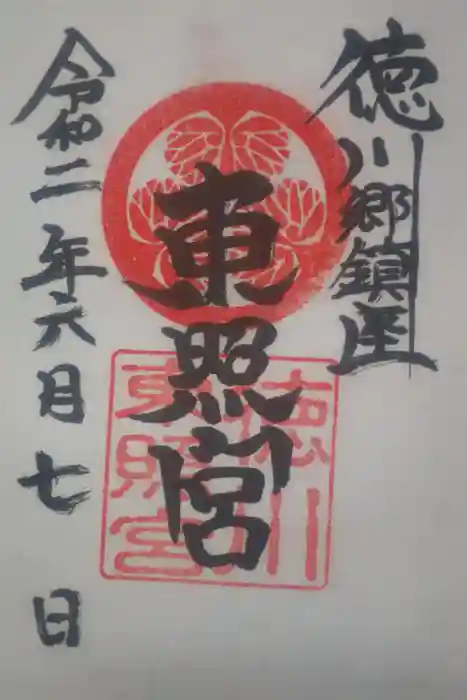 徳川郷鎮座
東照宮
令和二年六月七日
徳川
東照宮